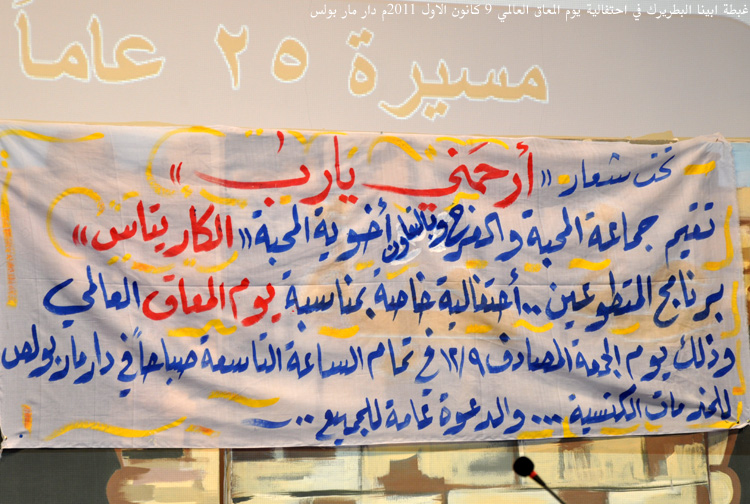 غبطة ابينا البطريرك في احتفالية يوم المعاق العالمي 9 كانون الاول 2011م دار مار بولس
مسيرة ٢٥ عاماً
تحت شعار « أرحمني يارب »
تقيم جماعة المحبة والفرح وبالتعاون أخوية المحبة « الكاريتاس »
برنامج المتطوعين .. أحتفالية خاصة بمناسبة يوم المعاق العالمي
وذلك يوم الجمعة المصادف ١٢/٩ في تمام الساعة التاسعة صباحاً في دار مار بولص
للخدمات الكنسية ... والدعوة عامة للجميع ...